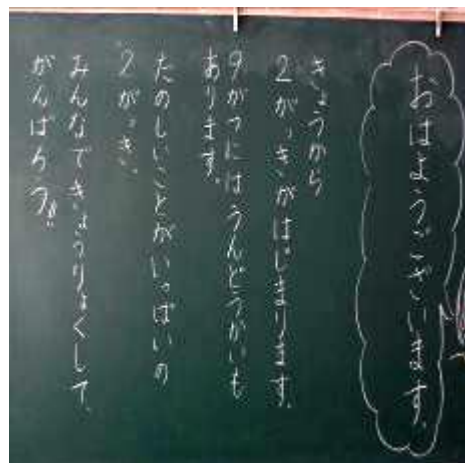 おはようございます。
きょうから
2がっきがはじまります。
9がつにはうんどうかいも
あります。
たのしいことがいっぱいの
2がっき。
みんなできょうりょくして、
がんばろう!!